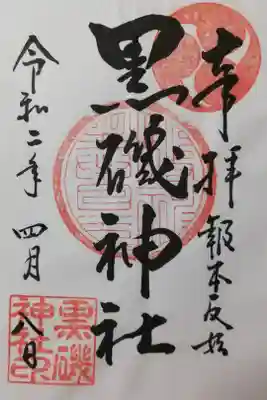 奉拝
報本反始
黒磯神社
令和二年 四月 八日
黒磯
神社印